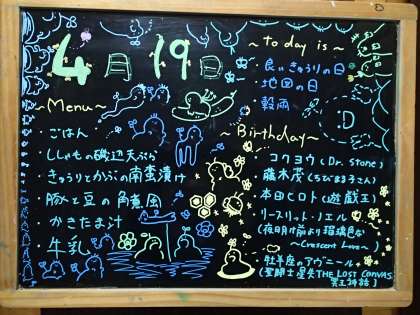 4月19日
~Menu~
・ごはん
・ししゃもの磯辺天ぷら
・きゅうりとかぶの南蛮漬け
・豚と豆の角煮風
・かきたま汁
・牛乳
~today is~
良いきゅうりの日
地図の日
穀雨
:D
~Birthday~
コクヨウ(Dr.Stone)
藤木茂(ちびまる子さん)
本田ヒロト(遊戯王)
リースリット・ノエル
(夜明け前より瑠璃色な
~Crescent Love~)
牡羊座のアヴニール
(聖闘士星矢THE LOST CANVAS
冥王神話)